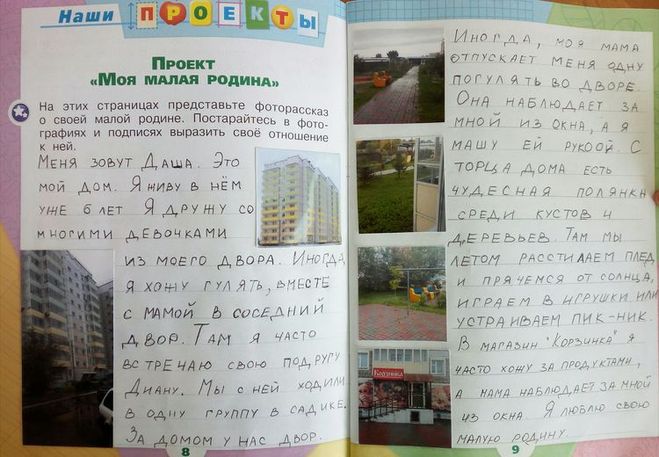 Наши ПРОЕКТЫ
ПРОЕКТ
«МОЯ МАЛАЯ РОДИНА»
На этих страницах представьте фоторассказ
о своей малой родине. Постарайтесь в фото-
графиях и подписях выразить своё отношение
к ней.
МЕНЯ ЗОВУТ ДАША. ЭТО
МОЙ ДОМ. Я ЖИВУ В НЁМ
УЖЕ 6 ЛЕТ Я ДРУЖУ СО
МНОГИМИ ДЕВОЧКАМИ
ИЗ МОЕГО ДВОРА. ИНОГДА
Я ХОЖУ ГУЛЯТЬ, ВМЕСТЕ
С МАМОЙ В СОСЕДНИЙ
ДВОР. ТАМ Я ЧАСТО
ВСТРЕЧАЮ СВОЮ ПОДРУГУ
ДИАНУ. МЫ С НЕЙ ХОДИЛИ
В ОДНУ ГРУППУ В САДИКЕ.
ЗА ДОМОМ У НАС ДВОР.
8
ИНОГДА, МОЯ МАМА
ОТПУСКАЕТ МЕНЯ ОДНУ
ПОГУЛЯТЬ ВО ДВОРЕ.
ОНА НАБЛЮДАЕТ ЗА
МНОЙ ИЗ ОКНА, А Я
МАШУ ЕЙ РУКОЙ. С
ТОРЦА ДОМА ЕСТЬ
ЧУДЕСНАЯ ПОЛЯНКА
СРЕДИ КУСТОВ И
ДЕРЕВЬЕВ. ТАМ МЫ
ЛЕТОМ РАССТИЛАЕМ ПЛЕД
И ПРЯЧЕМСЯ ОТ СОЛНЦА,
ИГРАЕМ В ИГРУШКИ ИЛИ
УСТРАИВАЕМ ПИК-НИК.
В МАГАЗИН "КОРЗИНКА" Я
ЧАСТО ХОЖУ ЗА ПРОДУКТАМИ,
А МАМА НАБЛЮДАЕТ ЗА МНОЙ
ИЗ ОКНА. Я ЛЮБЛЮ СВОЮ
МАЛУЮ РОДИНУ.
Корзинка
9